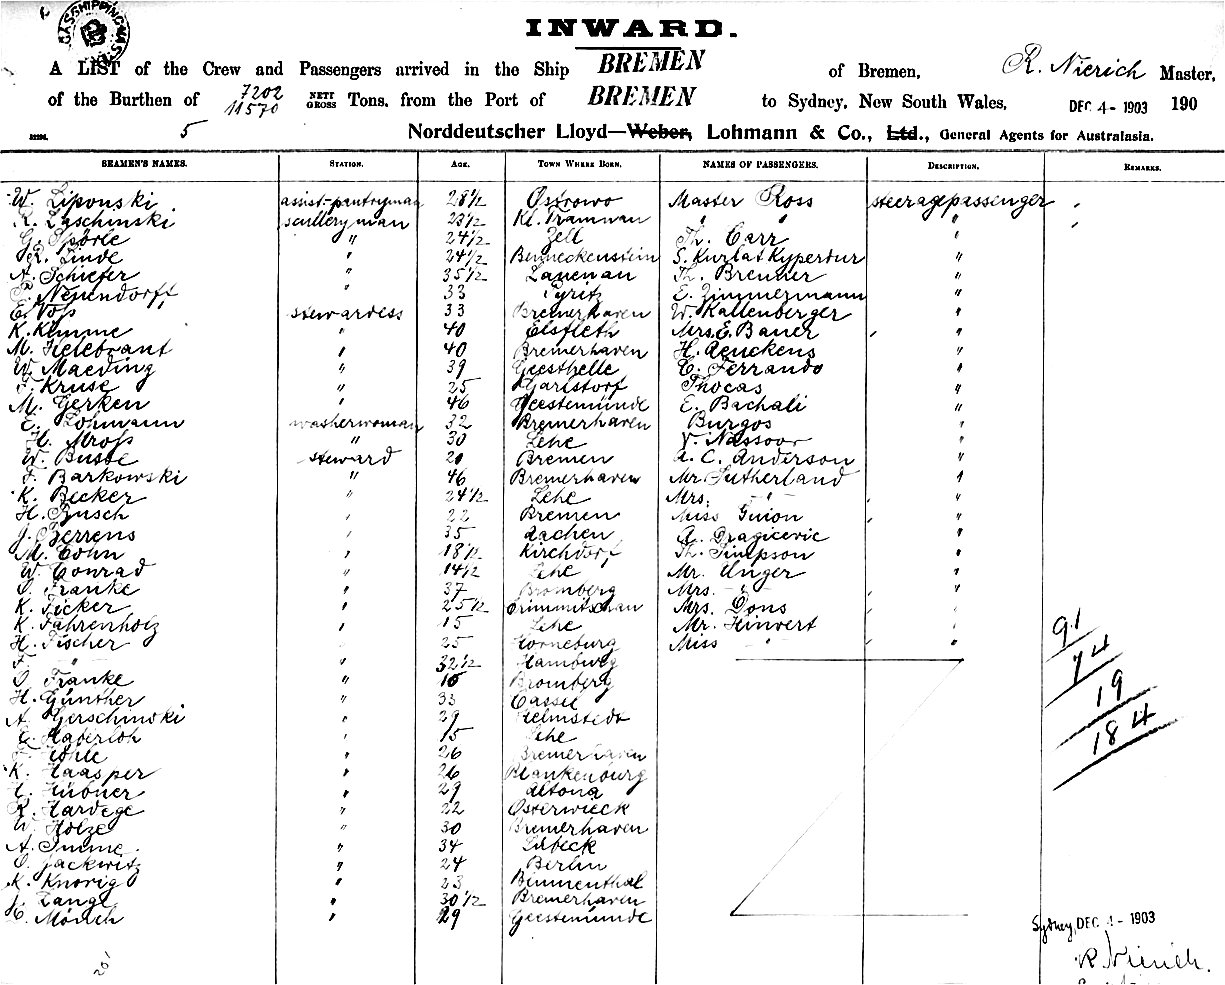 INWARD.
A LIST of the Crew and Passengers arrived in the Ship BREMEN of Bremen, R. Nierich Master,
of the Burthen of 7202 11570 NETT GROSS Tons, from the Port of BREMEN to Sydney, New South Wales, DEC 4 - 1903 190
5 Norddeutscher Lloyd—Weber, Lohmann & Co., Ltd., General Agents for Australasia.
SEAMEN'S NAMES. STATION. AGE. TOWN WHERE BORN. NAMES OF PASSENGERS. DESCRIPTION. REMARKS.
W. Liponski assist-pantryman 28 1/2 Ostrowo Master Ross steeragepassenger
R. Laschinski scullery man 23 1/2 Kl. Tramnau " " "
G. Spörle " 24 1/2 Zell Th. Carr "
R. Linde " 24 1/2 Benneckenstein S. Kurlat Kyperdur "
A. Schiefer " 35 1/2 Lauenau Th. Brenner "
Nependorff " 33 Pyritz E. Zimmermann "
E. Voß stewardess 33 Bremerhaven W. Kallenberger "
K. Klemme " 40 Elsfleth Mrs. E. Bauer "
M. Helebrant " 40 Bremerhaven H. Aeuckens "
W. Maeding " 39 Geesthelle C. Ferrando "
Kruse " 25 Garlstorf Thocas "
M. Gerken " 46 Geestemünde E. Bachali "
E. Lohmann washerwoman 32 Bremerhaven Burgos "
Stroß " 30 Lehe V. Nassoor "
W. Busse steward 20 Bremen A. C. Anderson "
F. Barkowski " 46 Bremerhaven Mr Sutherland "
K. Becker " 24 1/2 Lehe Mrs. " "
H. Busch " 22 Bremen Miss Guion "
J. Berrens " 35 Aachen A. Dragicevic "
M. Cohn " 18 1/2 Kirchdorf Th. Simpson "
W. Conrad " 14 1/2 Lehe Mr. Unger "
Franke " 37 Bromberg Mrs. " "
K. Ficker " 25 1/2 Crimmitschau Mrs. Dons "
K. Fahrenholz " 15 Lehe Mr. Hinvert "
H. Fischer " 25 Horneburg Miss " "
F. " " 32 1/2 Hamburg
Franke " 16 Bromberg
H. Günther " 33 Cassel
A. Gerschinski " 29 Helmstedt
Haberloh " 15 Lehe
" 26 Bremerhaven
K. Haasper " 26 Blankenburg
Hübner " 29 Altona
R. Hardege " 22 Osterwieck
W. Holze " 30 Bremerhaven
A. Imme " 34 Lübeck
O. Jackwitz " 24 Berlin
K. Knorig " 23 Blumenthal
J. Lange " 30 1/2 Bremerhaven
C. Mönch " 29 Geestemünde
91
74
19
184
Sydney, DEC 4 - 1903
R. Nierich.
20